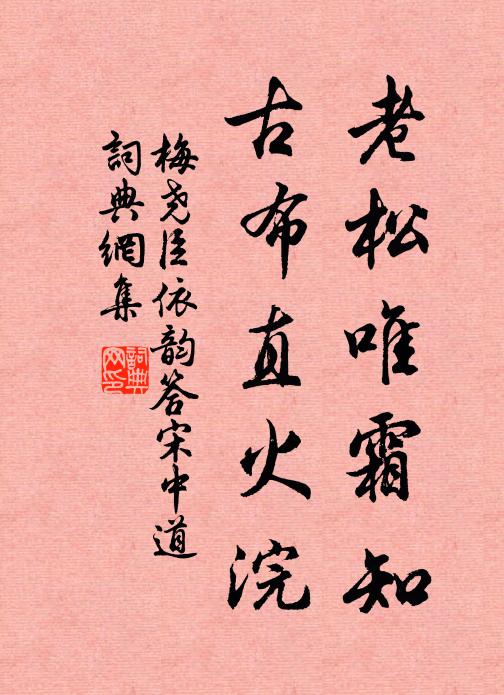 老松唯霜知
古布直火浣
梅尧臣依韵答宋中道
詞典網集
詞典网印